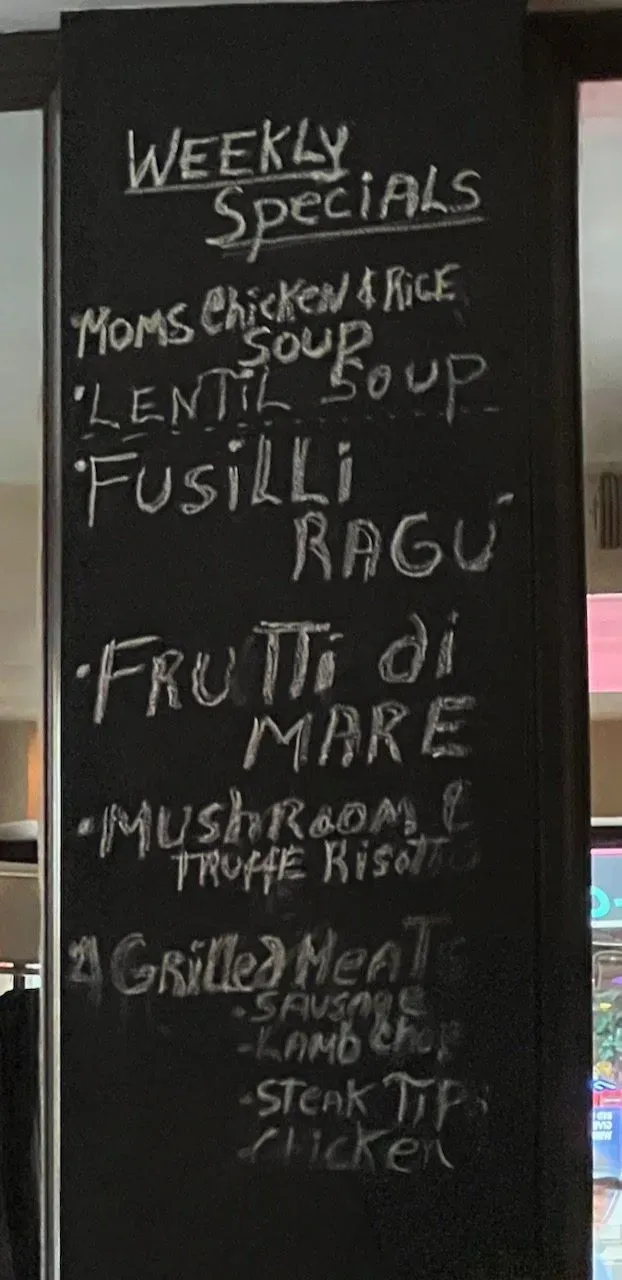 WEEKLY
SpeciALS
·MOMS Chicken & RicE
SOUP
·LENTiL SOUP
·FUSiLLi
RAGÚ
·FRUTTi di
MARE
·MUShROOM &
TRUFFE RisOTTO
GRilled MeaTs
-SAUSAGE
-LAMB Chop
-STEAK TiPs
-Chicken